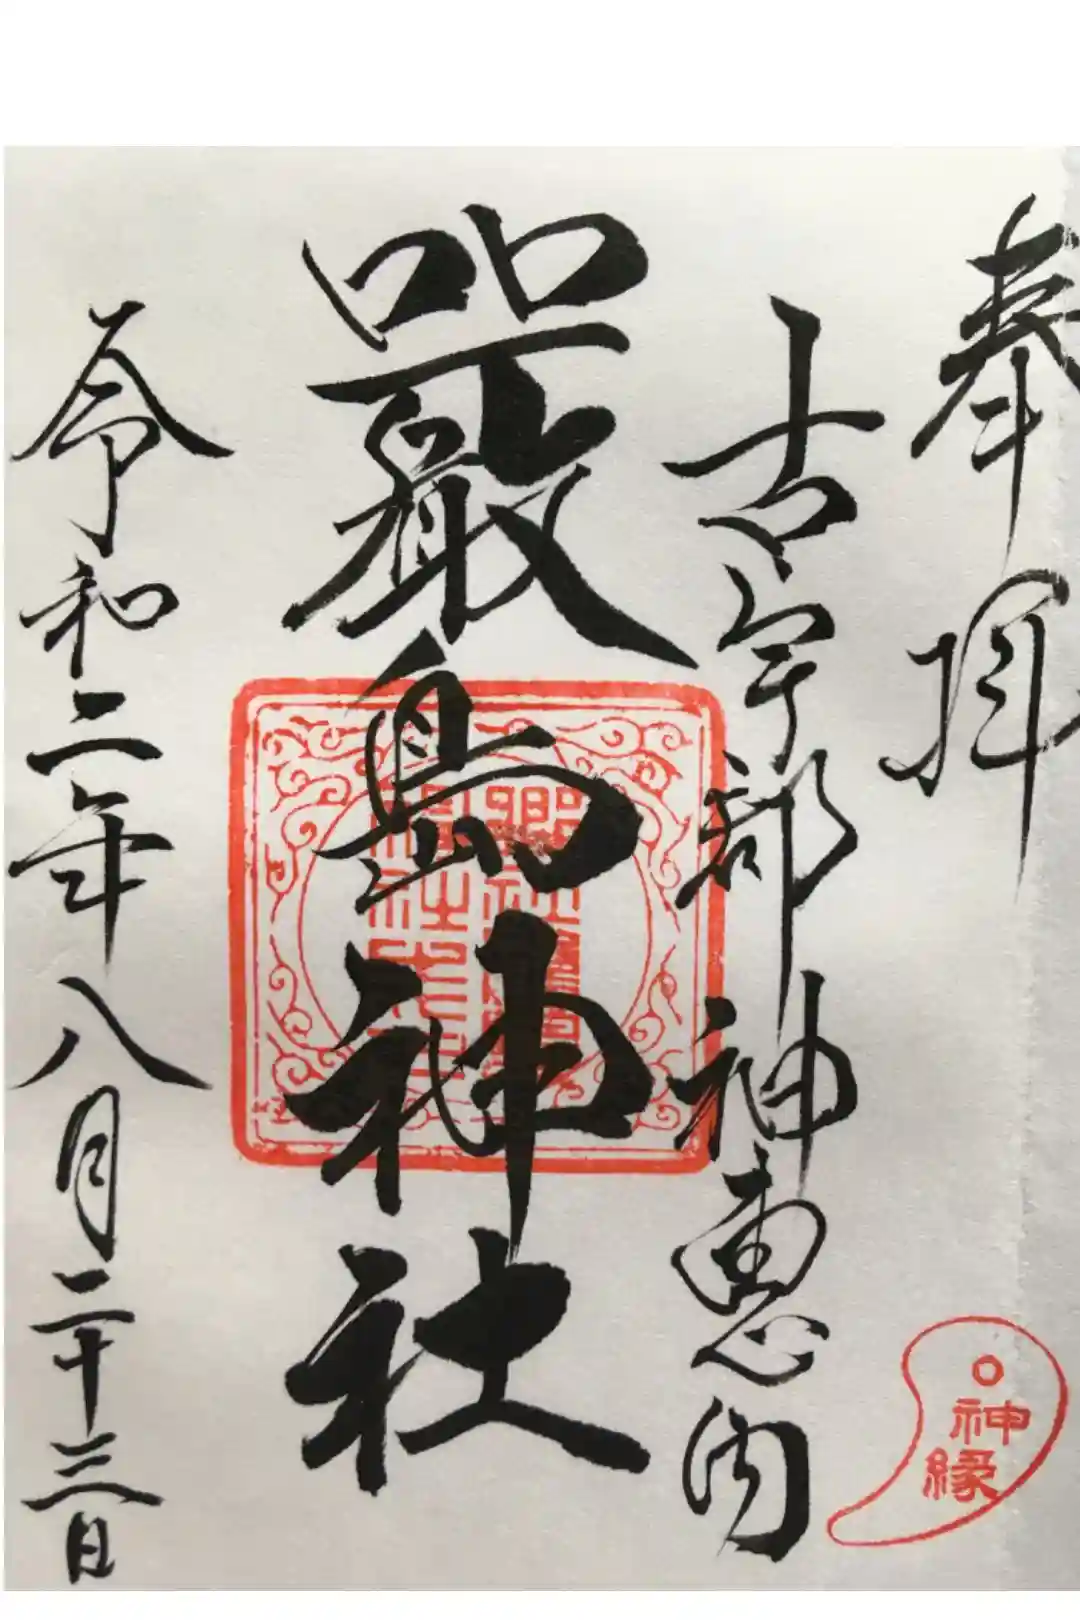 奉拝
古宇郡神恵内
嚴島神社
令和二年八月二十三日
神
縁